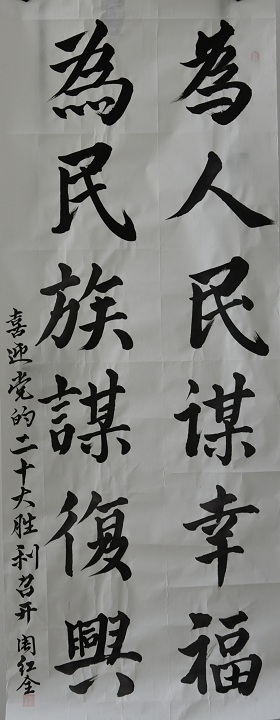 為人民谋幸福
為民族謀復興
喜迎党的二十大胜利召开 周红全